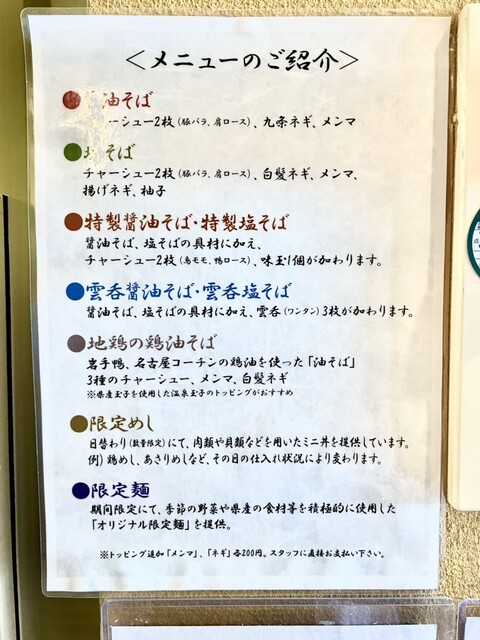 ＜メニューのご紹介＞
●醤油そば
チャーシュー2枚(豚バラ、肩ロース)、九条ネギ、メンマ
●塩そば
チャーシュー2枚(豚バラ、肩ロース)、白髪ネギ、メンマ、
揚げネギ、柚子
●特製醤油そば・特製塩そば
醤油そば、塩そばの具材に加え、
チャーシュー2枚(鳥モモ、鴨ロース)、味玉1個が加わります。
●雲呑醤油そば・雲呑塩そば
醤油そば、塩そばの具材に加え、雲呑(ワンタン)3枚が加わります。
●地鶏の鶏油そば
岩手鴨、名古屋コーチンの鶏油を使った「油そば」
3種のチャーシュー、メンマ、白髪ネギ
※県産玉子を使用した温泉玉子のトッピングがおすすめ
●限定めし
日替わり(数量限定)にて、肉類や貝類などを用いたミニ丼を提供しています。
例)鶏めし、あさりめしなど、その日の仕入れ状況により変わります。
●限定麺
期間限定にて、季節の野菜や県産の食材等を積極的に使用した
「オリジナル限定麺」を提供。
※トッピング追加「メンマ」、「ネギ」各200円。スタッフに直接お支払い下さい。